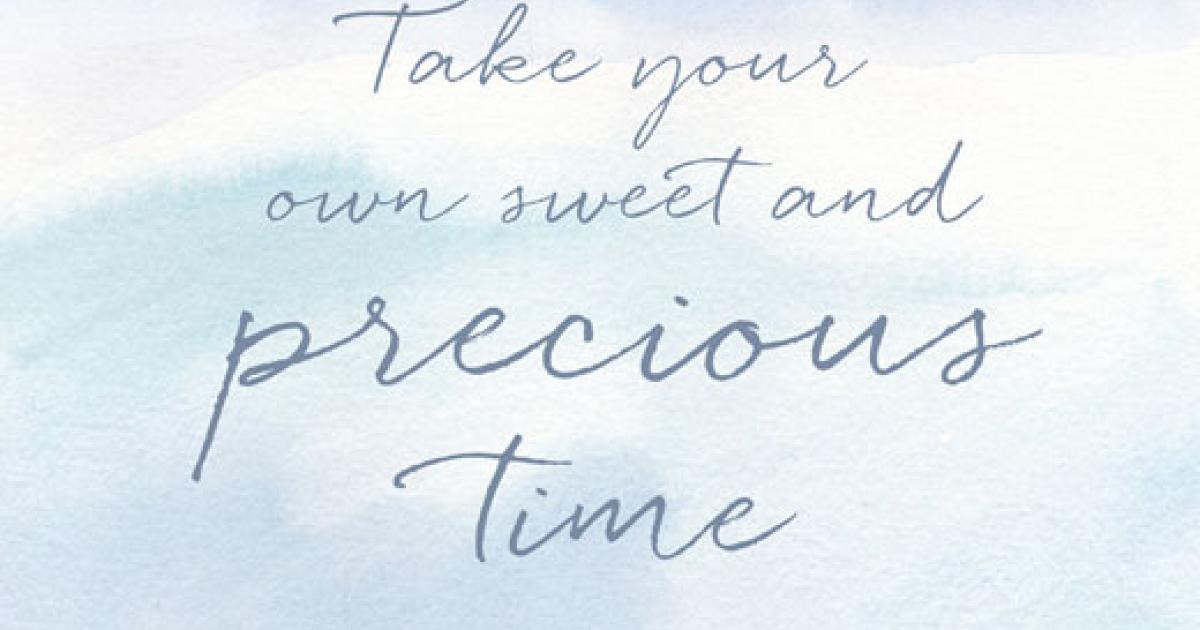 Take your
own sweet and
precious
time